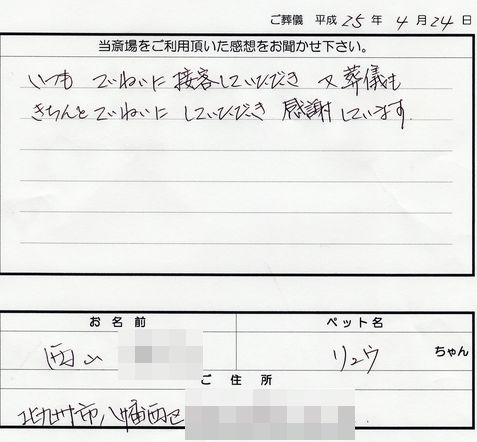 ご葬儀 平成 25 年 4 月 24 日
当斎場をご利用頂いた感想をお聞かせ下さい。
いつも ていねいに 接客していただき 又 葬儀も
きちんと ていねいに していただき 感謝しています。
お名前
ペット名
西山
リュウ ちゃん
ご住所
北九州市八幡西区